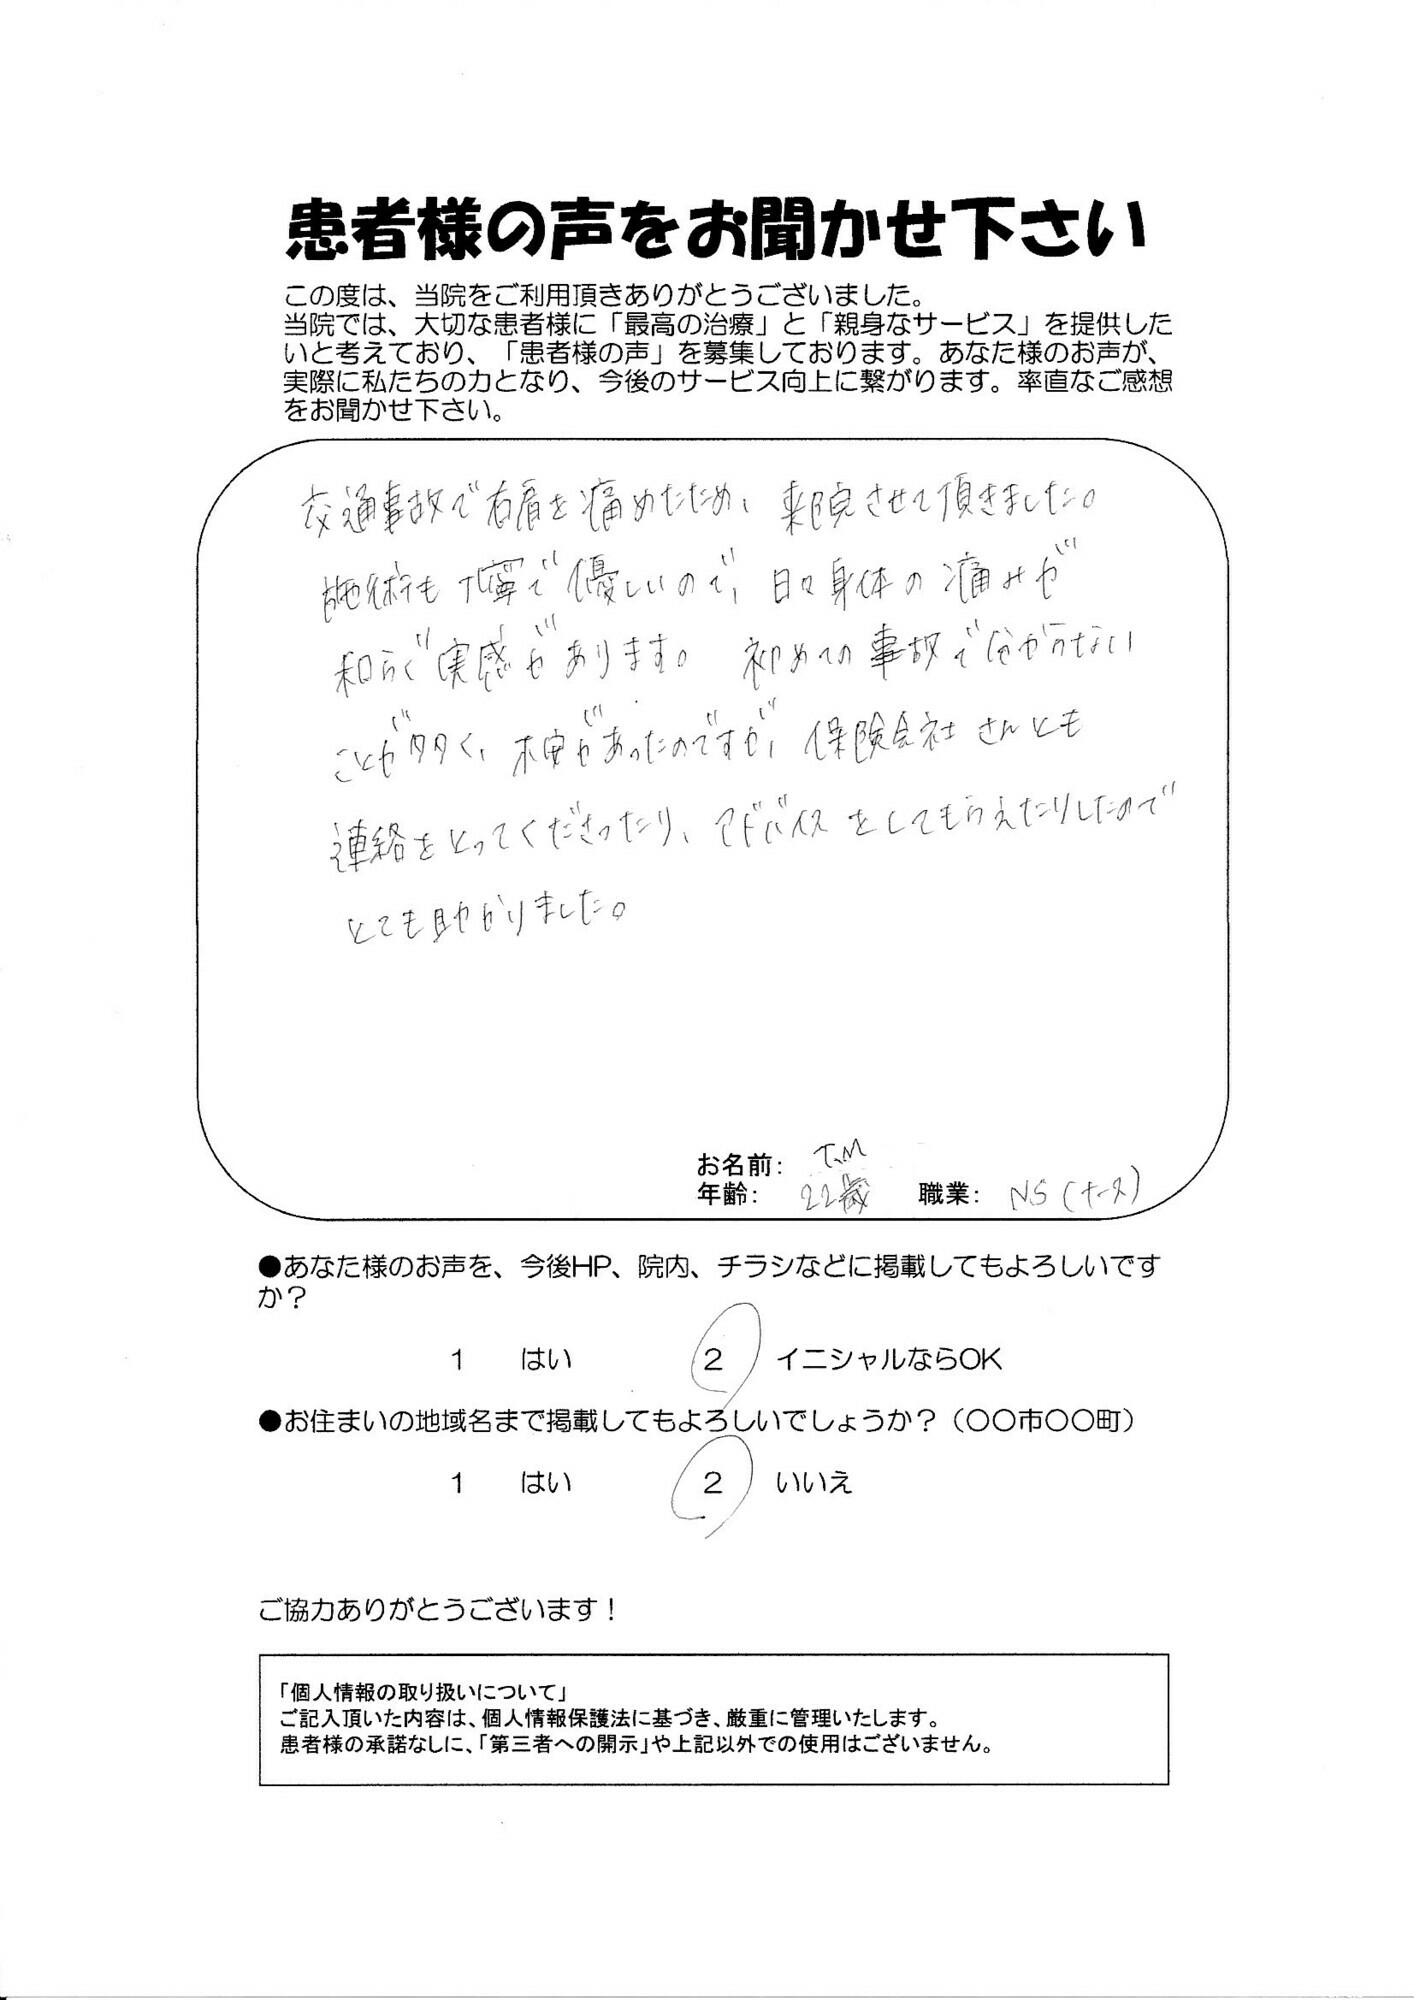 患者様の声をお聞かせ下さい
この度は、当院をご利用頂きありがとうございました。
当院では、大切な患者様に「最高の治療」と「親身なサービス」を提供した
いと考えており、「患者様の声」を募集しております。あなた様のお声が、
実際に私たちの力となり、今後のサービス向上に繋がります。率直なご感想
をお聞かせ下さい。
交通事故で右肩を痛めたため、来院させて頂きました。
施術も丁寧で優しいので、日々身体の痛みが
和らぐ実感があります。初めての事故で分からない
ことが多く、不安があったのですが、保険会社さんとも
連絡をとってくださったり、アドバイスをしてもらえたりしたので
とても助かりました。
お名前： T.M
年齢： 22歳 職業： NS（ナース）
●あなた様のお声を、今後HP、院内、チラシなどに掲載してもよろしいです
か？
1 はい 2 イニシャルならOK
●お住まいの地域名まで掲載してもよろしいでしょうか？（〇〇市〇〇町）
1 はい 2 いいえ
ご協力ありがとうございます！
「個人情報の取り扱いについて」
ご記入頂いた内容は、個人情報保護法に基づき、厳重に管理いたします。
患者様の承諾なしに、「第三者への開示」や上記以外での使用はございません。